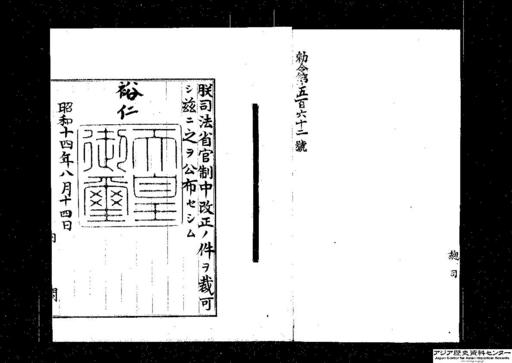 勅令第五百六十二號
朕司法省官制中改正ノ件ヲ裁可
シ茲ニ之ヲ公布セシム
裕仁
天皇
御璽
昭和十四年八月十四日
内閣
アジア歴史資料センター
Japan Center for Asian Historical Records